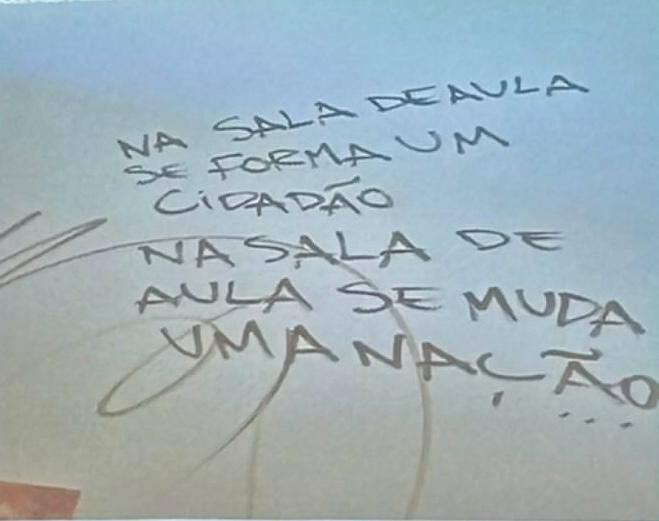 NA SALA DE AULA
SE FORMA UM
CIDADÃO
NA SALA DE
AULA SE MUDA
UMA NAÇÃO...